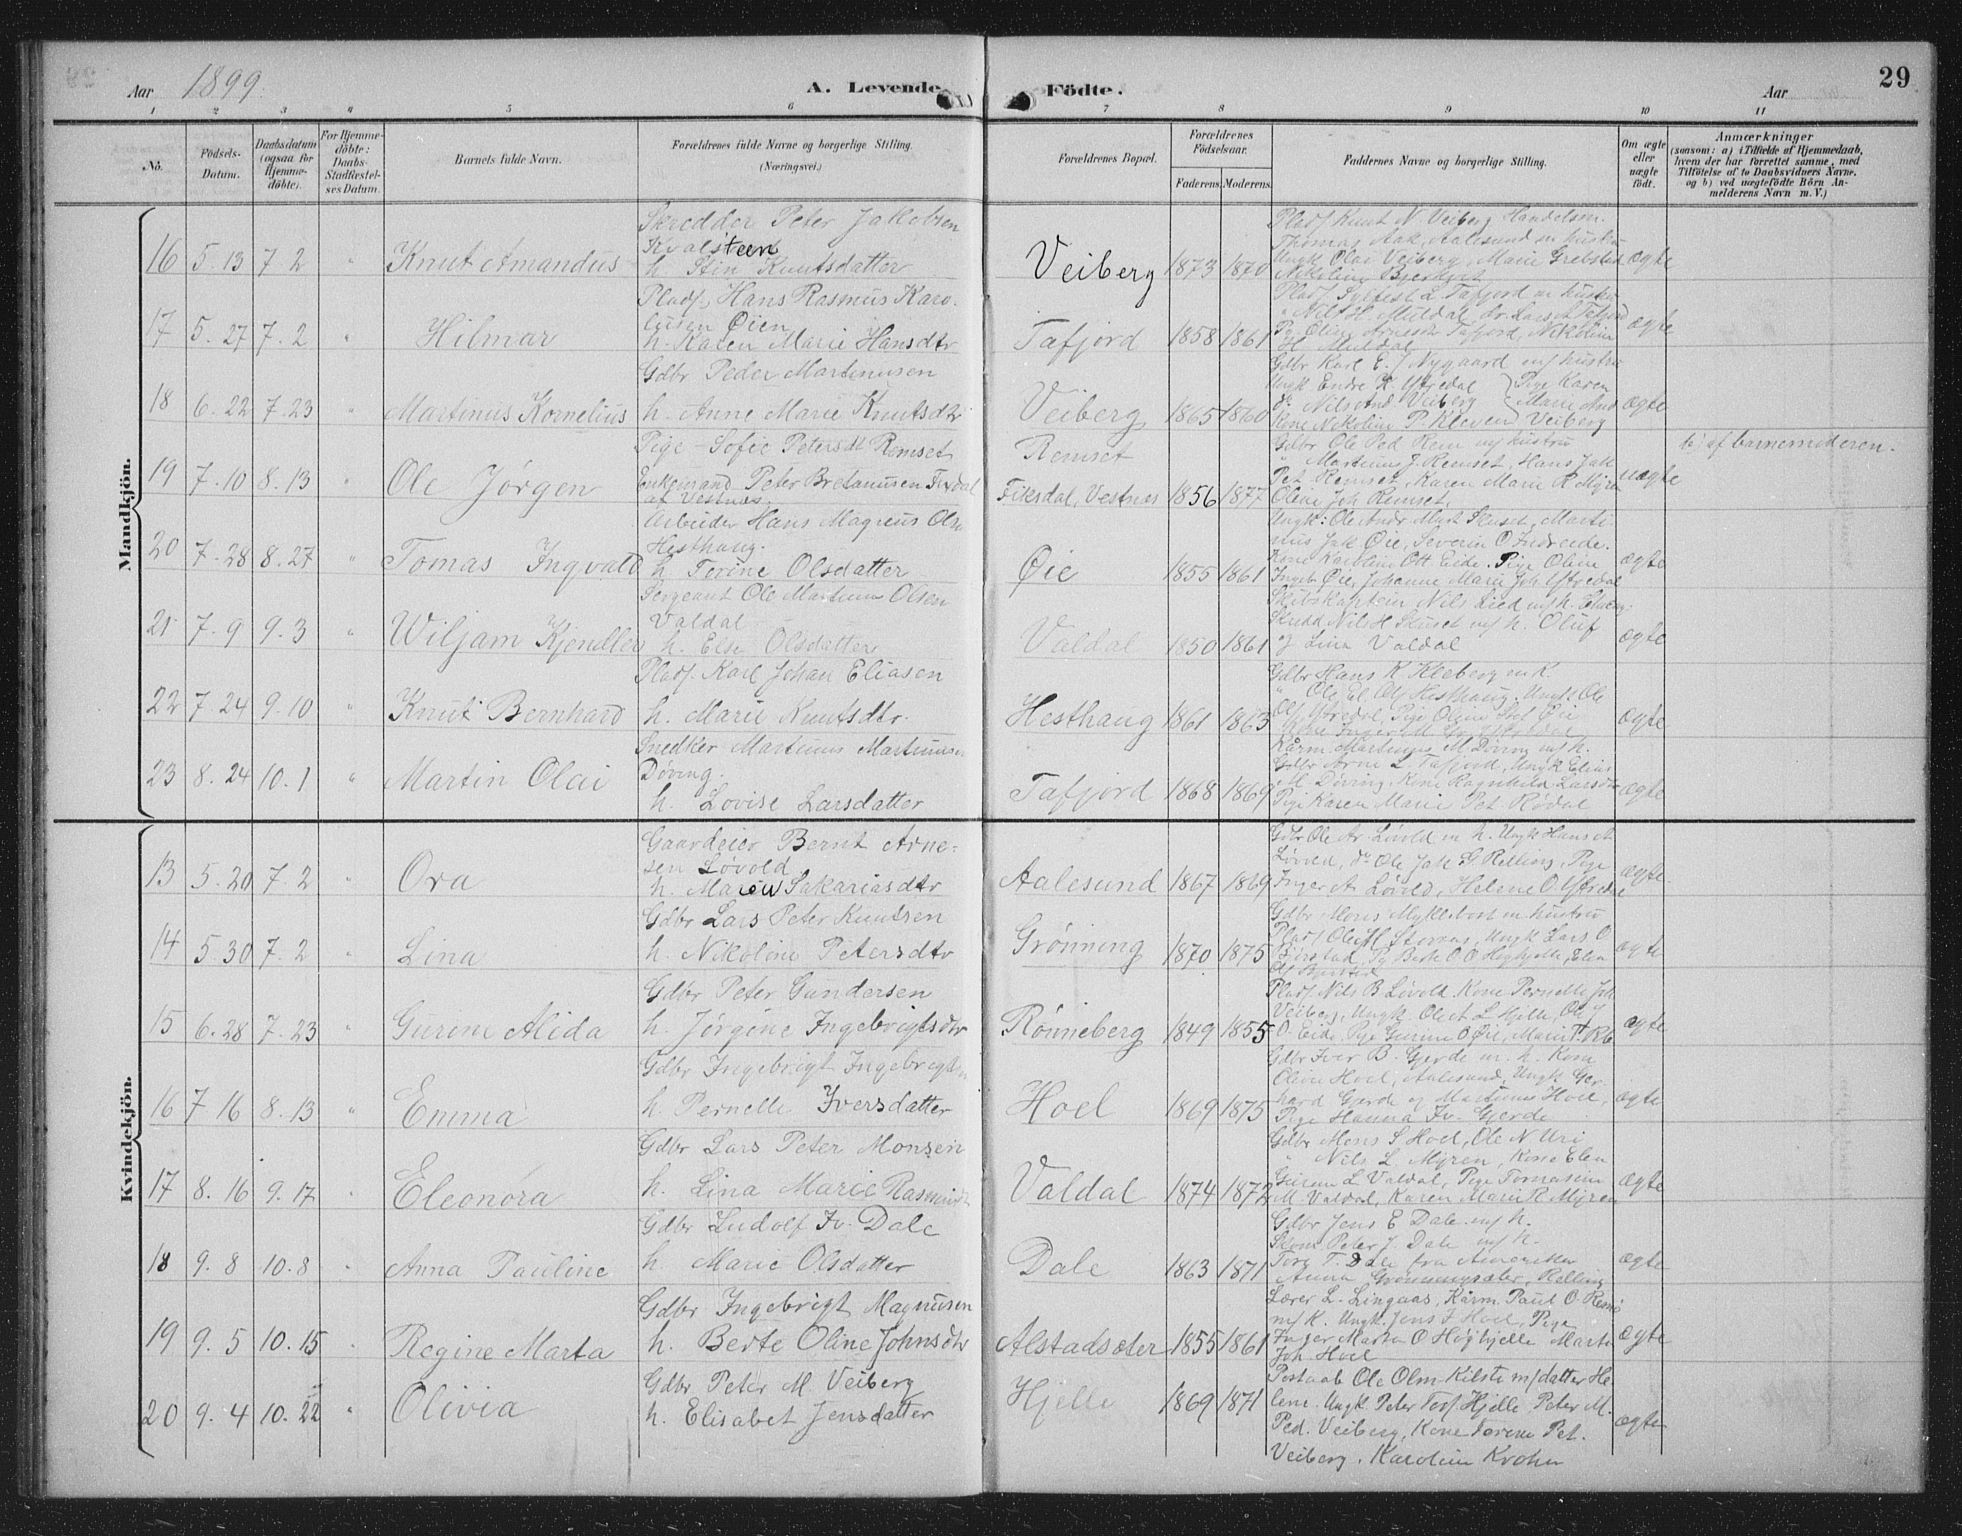 Aar 1899. A. Levende Födte. Aar 29
1 2 3 4 5 6 7 8 9 10 11
No. Födsels-Datum. Daabsdatum (ogsaa for Hjemmedöbte). For Hjemmedöbte: Daabs-Stadfestelses Datum. Barnets fulde Navn. Forældrenes fulde Navne og borgerlige Stilling. (Næringsvei.) Forældrenes Bopæl. Forældrenes Födselsaar. Faderens. Moderens. Faddernes Navne og borgerlige Stilling. Om ægte eller uægte födt. Anmærkninger (saasom: a) i Tilfælde af Hjemmedaab, hvem der har forrettet samme, med Tilföielse af to Daabsvidners Navne. og b) ved uægtefödte Börn Anmelderens Navn m. V.)
Mandkjön.
16 5.13 7.2 " Knut Amandus
Skredder Peter Jakobsen
Kvalsteen
h. Stin Knutsdatter
Veiberg 1873 1870
Plads. Knut N. Veiberg Handelsm.
Thomas Aak, Aalesund m hustru
Ungk Olai Veiberg, Marie Grebstad
Nikoline Bjerkevt
ægte
17 5.27 7.2 " Hilmar
Plads. Hans Rasmus Karo-
liusen Øien
h. Karen Marie Hansdtr
Tafjord 1858 1861
Plads Sylfest L Tafjord m hustru
" Nils H. Muldal, Lars A Tafjord
Pige Oline Arnesdt Tafjord, Nikoline
H Muldal
ægte
18 6.22 7.23 " Martinus Kornelius
Gdbr Peder Martinusen
h. Anne Marie Knutsdtr
Veiberg 1865 1860
Gdbr Karl E. Nygaard m/ hustru
Ungk Endre K. Ytredal } Pige Karen
do Nils And Veiberg } Marie And
Kone Nikoline P. Kleven Veiberg
ægte
19 7.10 8.13 " Ole Jørgen
Pige Sofie Petersdt Remset
Enkemand Peter Bretanusen Fixdal
af Vestnæs.
Remset
Fiksdal, Vestnes 1856 1877
Gdbr Ole Ped Rem m/ hustru
" Martinus J. Remset, Hans Jak
Pet Remset, Karen Marie R Myren
Olene Joh Remset.
uægte
b) af barnemoderen.
20 7.28 8.27 " Tomas Ingvald
Arbeider Hans Magnus Olsn
Hesthaug.
h. Terine Olsdatter
Øie 1855 1861
Ungk: Ole Andr Mart Skuset, Marti-
nus Jak Øie, Severin O Indreeide.
Kone Karoline Ott Eide. Pige Oline
Ingebr Øie, Johanne Marie Joh Ytredal
ægte
21 7.9 9.3 " Wiljam Kjendler
Sergeant Ole Martinus Olsen
Valdal
h. Else Olsdatter
Valdal 1850 1861
Skibskaptein Nils Lied m/ h.
Skredd Nils H Skuset m/ h. Oluf
J Lina Valdal
ægte
22 7.24 9.10 " Knut Bernhard
Plads. Karl Johan Eliasen
h. Marie Knutsdtr.
Hesthaug 1861 1863
Gdbr Hans K Kleberg m K.
" Ole El Ols Hesthaug. Ungk Ole
Ols Ytredal, Pige Oline Øie
ægte
23 8.24 10.1 " Martin Olai
Snedker Martinus Martinusn
Døving.
h. Lovise Larsdatter
Tafjord 1868 1869
Kårm. Martinus M Døving m/ h.
Gdbr Arne L Tafjord, Ungk Elias
M. Døving. Kone Ragnhild Larsdtr
Pige Karen Marie Pet Rødal
ægte
Kvindekjön.
13 5.20 7.2 " Ora
Gaardeier Bernt Arne-
sen Løvold
h. Maren Sakariasdtr
Aalesund 1867 1869
Gdbr Ole Ar Løvold m h. Ungk Hans A
Løvold, do Ole Jak G Relling, Pige
Inger A Løvold, Helene O Ytredal
ægte
14 5.30 7.2 " Lina
Gdbr Lars Peter Knutsen
h. Nikoline Petersdtr
Grönning 1870 1875
Gdbr Mons Myklebost m hustru
Plads Ole H Stornes, Ungk Lars O
Bjørstad, Pg Berte O O Høghjelle, Elen
Ols Bjørstad
ægte
15 6.28 7.23 " Gurine Alida
Gdbr Peter Gundersen
h Jørgine Ingebrigtsdtr
Rønneberg 1849 1855
Plads. Nils B Løvold. Kone Pernelle Joh
Veiberg, Ungk Ole A L Hjelle, Ole J
O. Eide. Pige Gurine O Øie, Marie P. Røb
ægte
16 7 16 8.13 " Emma
Gdbr Ingebrigt Ingebrigtsn
h Pernelle Iversdatter
Hoel 1869 1875
Gdbr Iver B. Gjerde m. h. Kone
Oline Hoel, Aalesund, Ungk Ger-
hard Gjerde og Martinus Hoel,
Pige Hanna Iv. Gjerde.
ægte
17 8.16 9.17 " Eleonora
Gdbr Lars Peter Monsen
h. Lina Marie Rasmusdt
Valdal 1874 1872
Gdbr Mons S Hoel, Ole N Uri
" Nils L Myren, Kone Elen
Gurine L Valdal, Pige Tomasine
M. Valdal, Karen Marie R. Myren
ægte
18 9.8 10.8 " Anna Pauline
Gdbr Ludolf Iv. Dale
h. Marie Olsdatter
Dale 1863 1871
Gdbr Jens E Dale m/ h.
Skom Peter J. Dale m/ h.
Tore T. Dale fra Amerika
Anna Grönningsæter, Relling
ægte
19 9.5 10.15 " Regine Marta
Gdbr Ingebrigt Magnusen
h. Berte Oline Johnsdtr
Alstadsæter 1855 1861
Lærer L. Lingaas, Kårm. Paul O. Remø
m/ K. Ungk. Jens F Hoel, Pige
Inger Marta O Høghjelle Marta
Joh Hoel
ægte
20 9.4 10.22 " Olivia
Gdbr Peter M. Veiberg
h. Elisabet Jensdatter
Hjelle 1869 1871
Postaab Ole Olm Kilsti m/ datter He-
lene. Ungk Peter Tors Hjelle, Peter M.
Ped. Veiberg, Kone Torine Pet.
Veiberg. Karoline Krohn
ægte